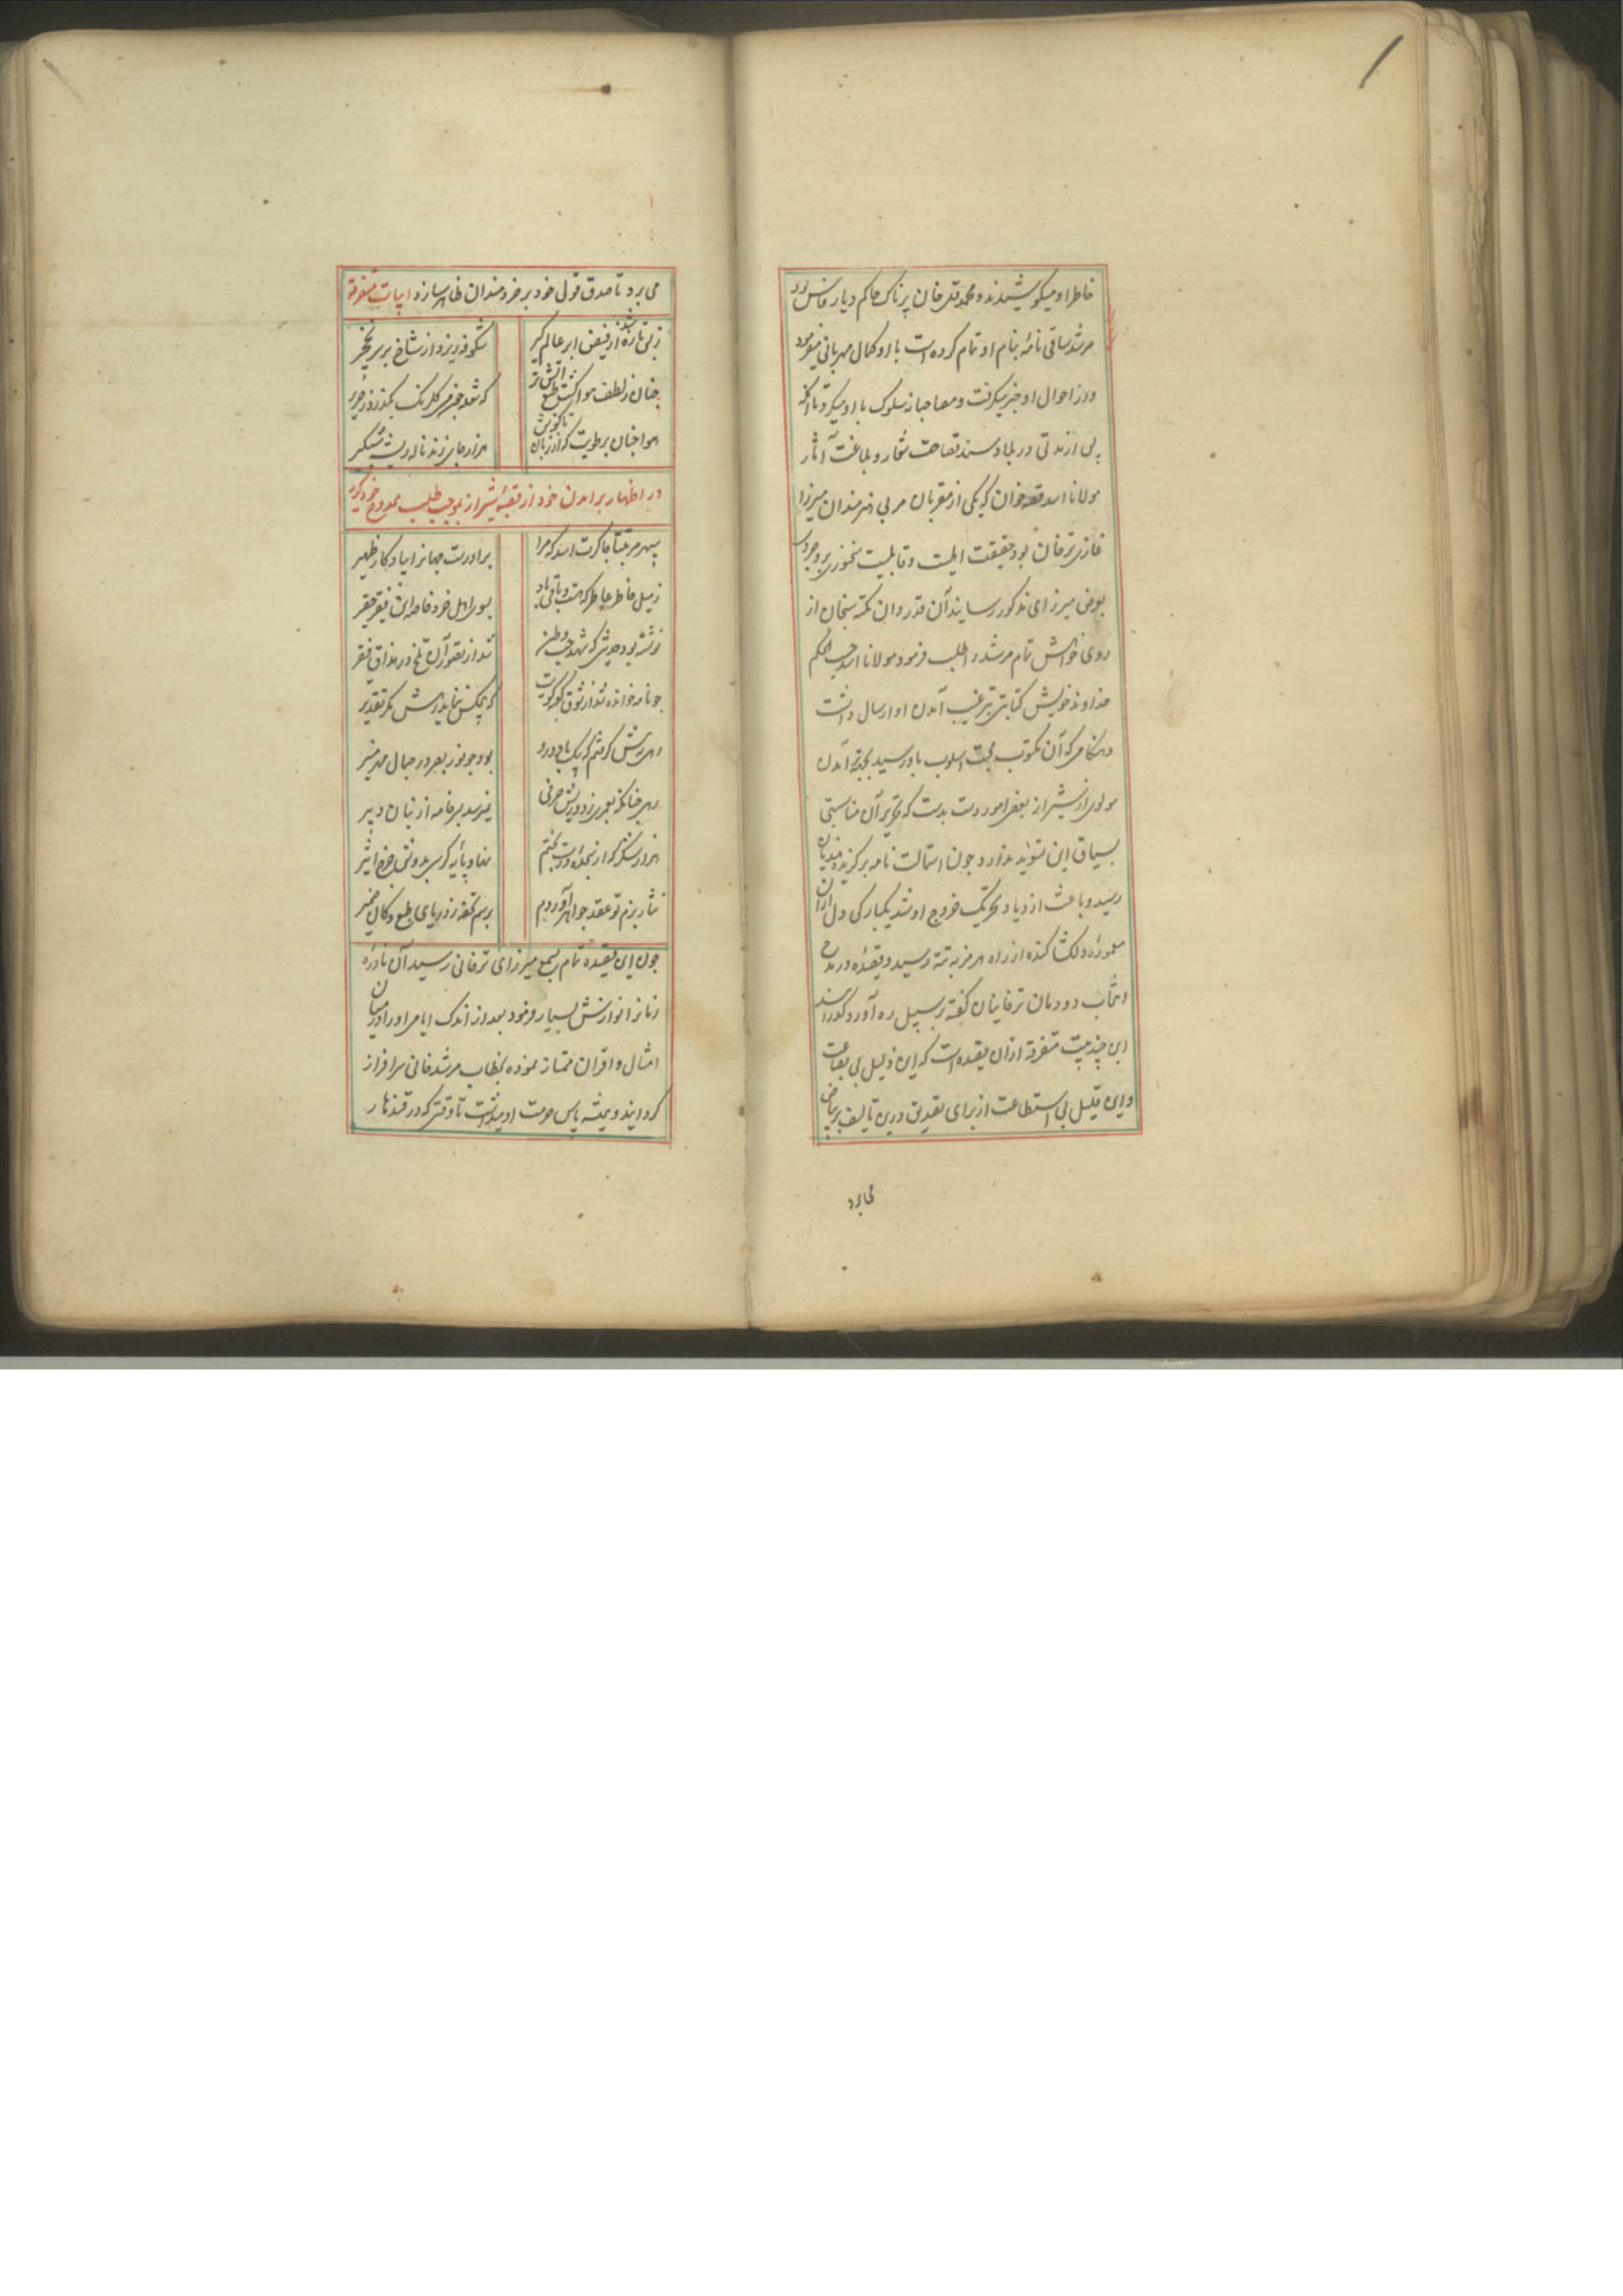 خاطر او میکوشیدند و محمد قلی خان پرناک حاکم دیار فارس بود
مرشد ساقی نامه بنام او تمام کرده است با او کمال مهربانی میفرمود
و از احوال او خبر میگرفت و مصاحبانه سلوک با او میکرد تا آنکه
پی از مدتی در بلاد سند فصاحت شعار و بلاغت آثار
مولانا اسد قصه خوان که یکی از مقربان مربی هنرمندان میرزا
غازی ترخان بود حقیقت اهلیت و قابلیت سخنوری بر وجود
بعرض میرزای مذکور رسانید آن قدردان نکته سنجان از
روی خواهش تمام مرشد را طلب فرمود مولانا اسد حسب الحکم
خداوند خویش کتابتی بترغیب آمدن او ارسال داشت
هنگامی که آن مکتوب محبت اسلوب باو رسید بجهته آمدن
مولوی از شیراز بعضی امور دست بدست که تحریر آن مناسبتی
بسیاق این تسوید ندارد چون استمالت نامه برگزیده
رسید و باعث ازدیاد تحریک خروج او شد یکبارگی دل ازان
معموره دلکشا کنده از راه هرمز به تته رسید و قصیده در مدح
انتخاب دودمان ترخانیان گفته بر سبیل ره آورد گذرانید
این چند بیت متفرقه ازان قصیده است که این ذلیل بی بضاعت
و این قلیل بی استطاعت از برای تصدیق درین تالیف بر بیاض
می برد تا صدق قول خود بر خردمندان ظاهر سازد ابیات متفرقه
زهی تازه شد از فیض ابر عالم گیر شکوفه ریزد از شاخ بر سر نخجیر
چنان ز لطف هوا گشت طبع آتش تر که شعله چون می گلرنگ بگذرد ز حریر
هوا چنان برطوبت که از زبان تا گوش هزار جای زند ناله ریشه شبگیر
در اظهار برامدن خود از قصبه شیراز بموجب طلب ممدوح خود گوید
سپهر مرتبتا چاکرت اسد که مرا برادرست جهانرا یادگار ظهیر
ز میل خاطر عاطر که هست و باقی باد بسوی اهل خرد خاصه این فقیر حقیر
نوشته بود حدیثی که شهد حب وطن شد از تصور آن تلخ در مذاق فقیر
چو نامه خوانده شد از شوق کوی که کس نماید رهش مگر تقدیر
رهی به پیش گرفتم که پیک باد درو بود چو نور بصر در جبال مهر منیر
رهی چنانکه بعمری زد و ریش حرفی نمیرسد بسر خامه از بنان دبیر
هزار شکر که از بخت نهاد پایه کرسی بدوش چرخ اثیر
نثار بزم تو عقد جواهر آوردم برسم تحفه ز دریای طبع و کان ضمیر
چون این قصیده تمام بسمع میرزای ترخانی رسید آن نادره
زمانرا نوازش بسیار فرمود بعد از اندک ایامی او را در میان
امثال و اقران ممتاز نموده بخطاب مرشد خانی سرافراز
گردانید و همیشه پاس حرمت او میداشت تا وقتی که در قندهار